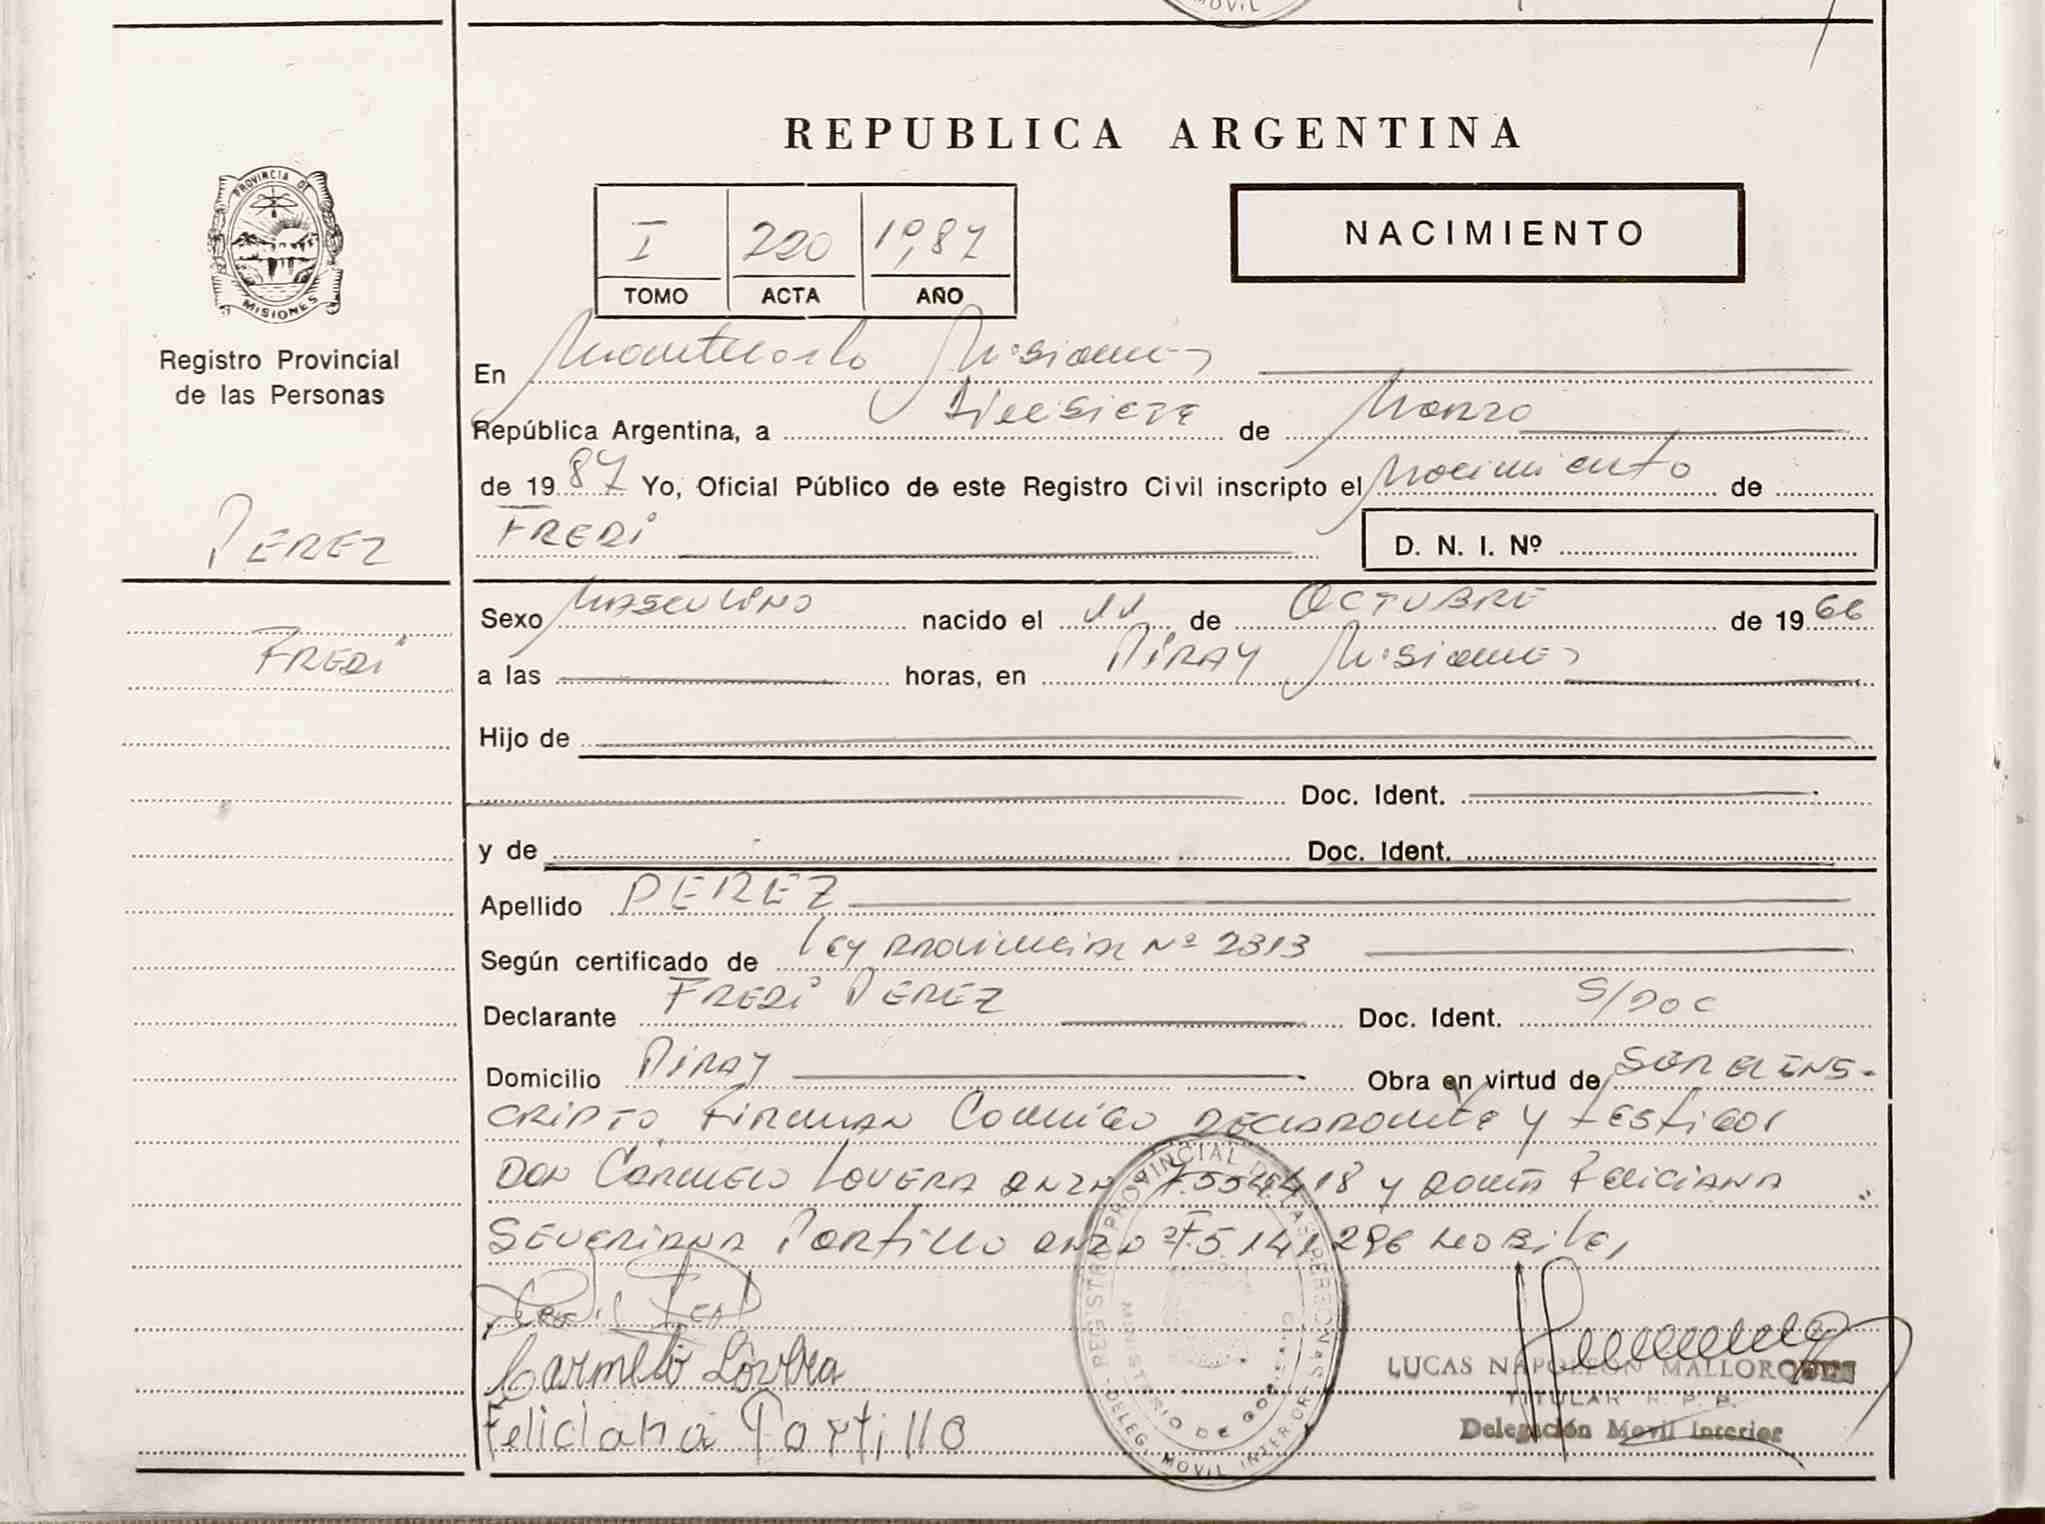 MOVIL
REPUBLICA ARGENTINA
PROVINCIA DE
MISIONES
Registro Provincial
de las Personas
I 220 1987
TOMO ACTA AÑO
NACIMIENTO
En Montecarlo Misiones
República Argentina, a Diecisiete de Marzo
de 19 87 Yo, Oficial Público de este Registro Civil inscripto el Nacimiento de
PEREZ
FREDI D. N. I. Nº
FREDI
Sexo MASCULINO nacido el 11 de OCTUBRE de 19 66
a las horas, en PIRAY Misiones
Hijo de
Doc. Ident.
y de Doc. Ident.
Apellido PEREZ
Según certificado de Ley PROVINCIAL Nº 2313
Declarante FREDI PEREZ Doc. Ident. S/DOC
Domicilio PIRAY Obra en virtud de SER EL INS-
CRIPTO FIRMAN Conmigo DECLARANTE y testigos
DON CARMELO LOVERA 7.554.418 y DOÑA FELICIANA
SEVERIANA Portillo 5.141.296 HABILES
Carmelo Lovera
Feliciana Portillo
REGISTRO PROVINCIAL DE LAS PERSONAS
MINISTERIO DE GOBIERNO
DELEG. MOVIL INTERIOR
LUCAS NAPOLEON MALLORQUIN
TITULAR R. P. P.
Delegación Movil Interior